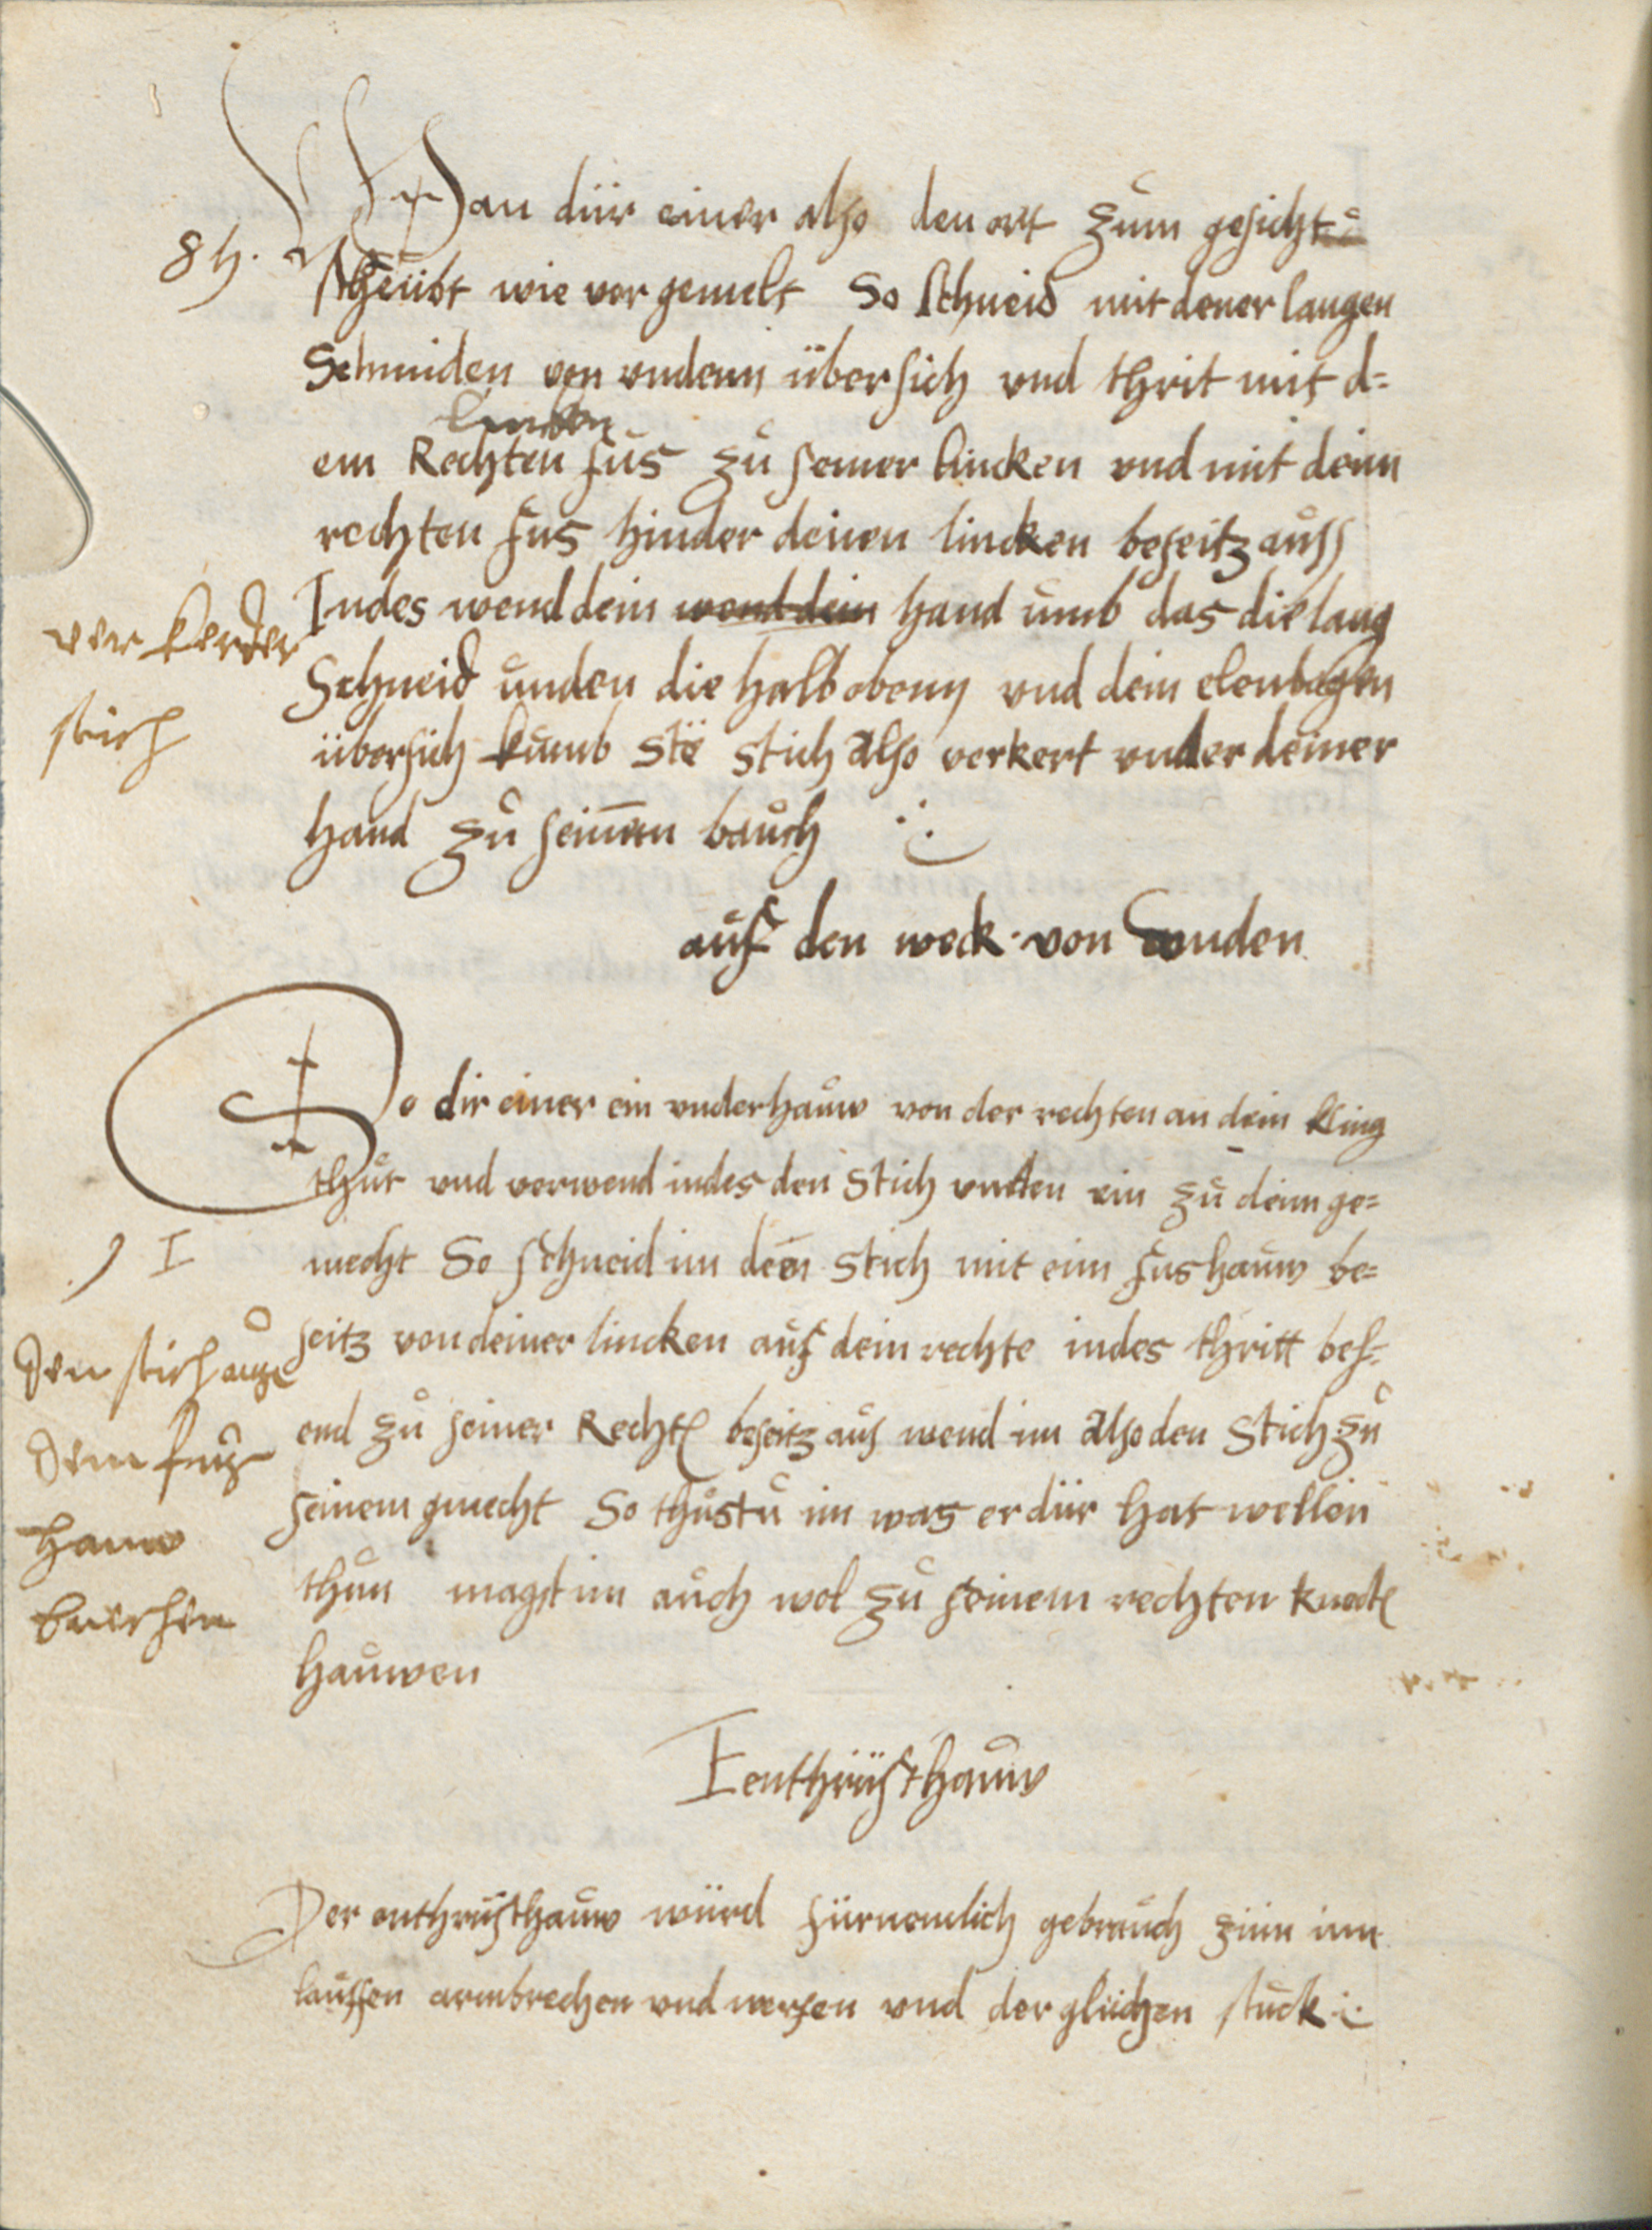 Wan dür einer also den ort zům gesicht
scheübt wie vor gemelt So schneid mit dener langen
Schniden von undenn übersich vnd thrit mit d=
lincken
em Rechten fůs zů seiner lincken vnd mit deim
rechten fus hinder deinen lincken beseitz aůss
Indes wend dein wend dein hand ůmb das die lang
Schneid ůnden die halb obenn vnd dein elenbogen
übersich kůmb stë stich also verkert vnder deiner
hand zů seinnen baůch
verkerder
stich
aůf den weck von unden
So dir einer ein vnderhaůw von der rechten an dein kling
thůt vnd verwend indes den stich vnden ein zů deim ge=
mecht So schneid im den stich mit eim fushaůw be=
seitz von deiner lincken aůf dein rechte indes thritt beh=
end zů seiner Rechten beseitz aus wend im also den stich zů
seinem gmecht So thůstů im was er dür hat wellen
thůn magst im aůch wol zů seinem rechten knoch
haůwen
I
den stich auss
dem fuss
hauw
brechen
I enthrüsthaůw
Der enthrüsthaůw würd fürnemlich gebraůch züm inn
laůffen armbrechen vnd werfen vnd der glichen stůck